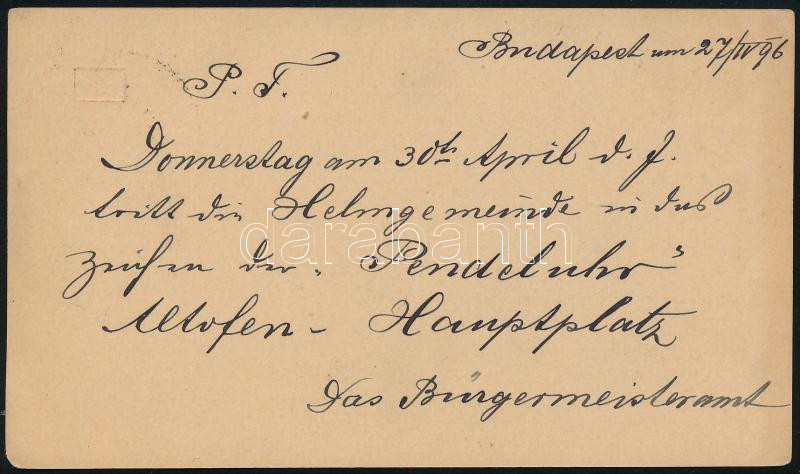 Budapest am 27/IV 96
P. T.
Donnerstag am 30th April d. J.
tritt die Helmgemeinde in das
Zeichen der „Pendeluhr"
Altofen - Hauptplatz
Das Bürgermeisteramt
darabanth